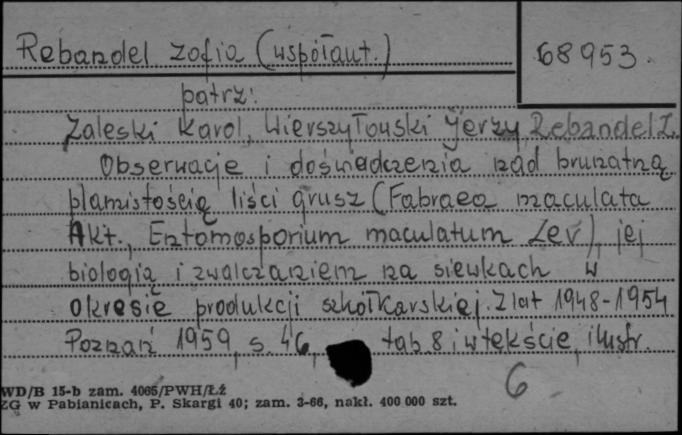 Rebandel Zofia (współaut.)
68953.
patrz:
Zaleski Karol, Wierszyłouski Jerzy, Rebandel Z.
Obserwacje i doświadczenia nad brunatną
plamistością liści grusz (Fabraea maculata
Akt., Entomosporium maculatum Lev), jej
biologią i zwalczaniem na siewkach w
okresie produkcji szkółkarskiej. Z lat 1948-1954
Poznań 1959, s. 46, tab. 8 i w tekście, ilustr.
6
WD/B 15-b zam. 4065/PWH/Łż
ZG w Pabianicach, P. Skargi 40; zam. 3-66, nakł. 400 000 szt.